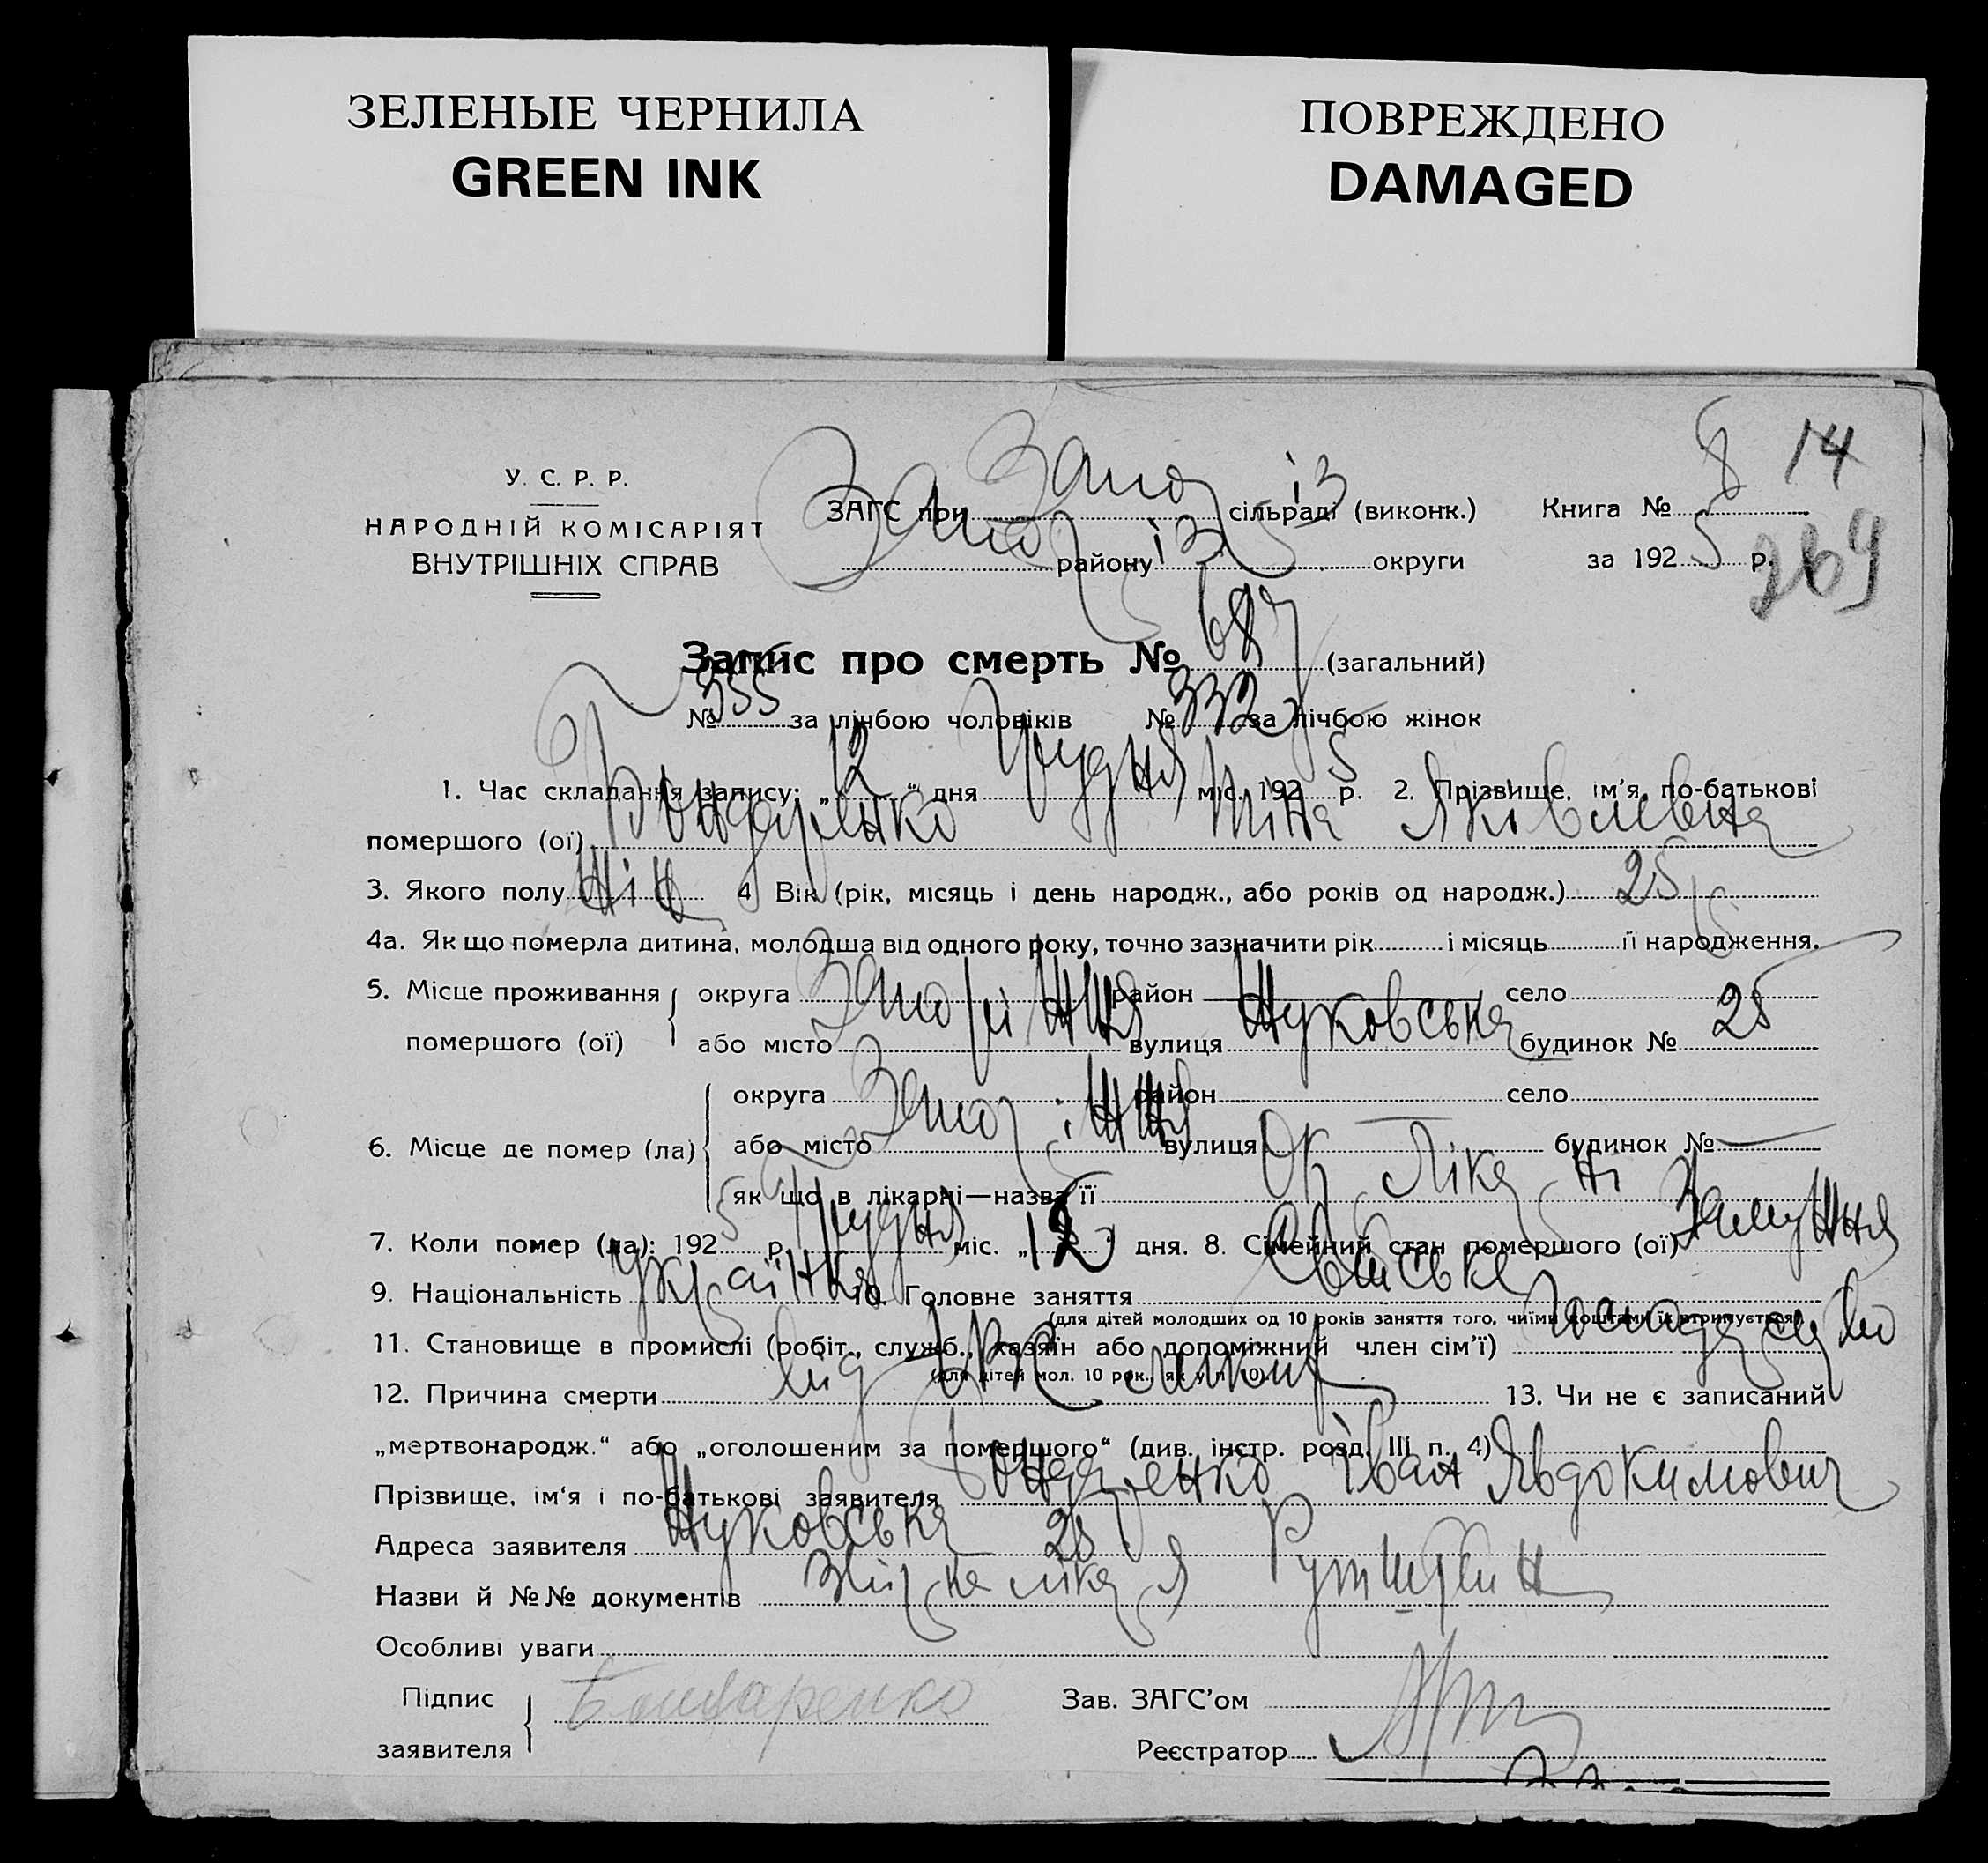 ЗЕЛЕНЫЕ ЧЕРНИЛА
GREEN INK
ПОВРЕЖДЕНО
DAMAGED
8 14
У. С. Р. Р.
НАРОДНІЙ КОМІСАРІЯТ
ВНУТРІШНІХ СПРАВ
ЗАГС при Запоріз сільраді (виконк.) Книга №
Запоріз району округи за 1925 р. 269
Запис про смерть № 687 (загальний)
№ 355 за лічбою чоловіків № 332 за лічбою жінок
1. Час складання запису: „12" дня Грудня міс. 1925 р. 2. Прізвище, ім'я, по-батькові
помершого (ої) Бондаренко Яківлевна
3. Якого полу Жін 4 Вік (рік, місяць і день народж., або років од народж.) 25
4а. Як що померла дитина, молодша від одного року, точно зазначити рік і місяць її народження.
5. Місце проживання помершого (ої) округа район село
або місто Запоріжжя вулиця Жуковська будинок № 25
6. Місце де помер (ла) округа район село
або місто Запоріжжя вулиця будинок №
як що в лікарні—назва її Окр Лікарні
7. Коли помер (ла): 1925 р. Грудня міс. „12" дня. 8. Сімейний стан помершого (ої) Замужня
9. Національність Українка 10. Головне заняття
(для дітей молодших од 10 років заняття того, чиїми коштами їх втримується)
11. Становище в промислі (робіт., служб., хазяїн або допоміжний член сім'ї) господарство
(для дітей мол. 10 рок., як у п. 10)
12. Причина смерти від 13. Чи не є записаний
„мертвонародж." або „оголошеним за помершого" (див. інстр. розд. III п. 4)
Прізвище, ім'я і по-батькові заявителя Бондаренко Іван Явдокимович
Адреса заявителя Жуковська 25
Назви й №№ документів
Особливі уваги
Підпис заявителя Бондаренко Зав. ЗАГС'ом
Реєстратор